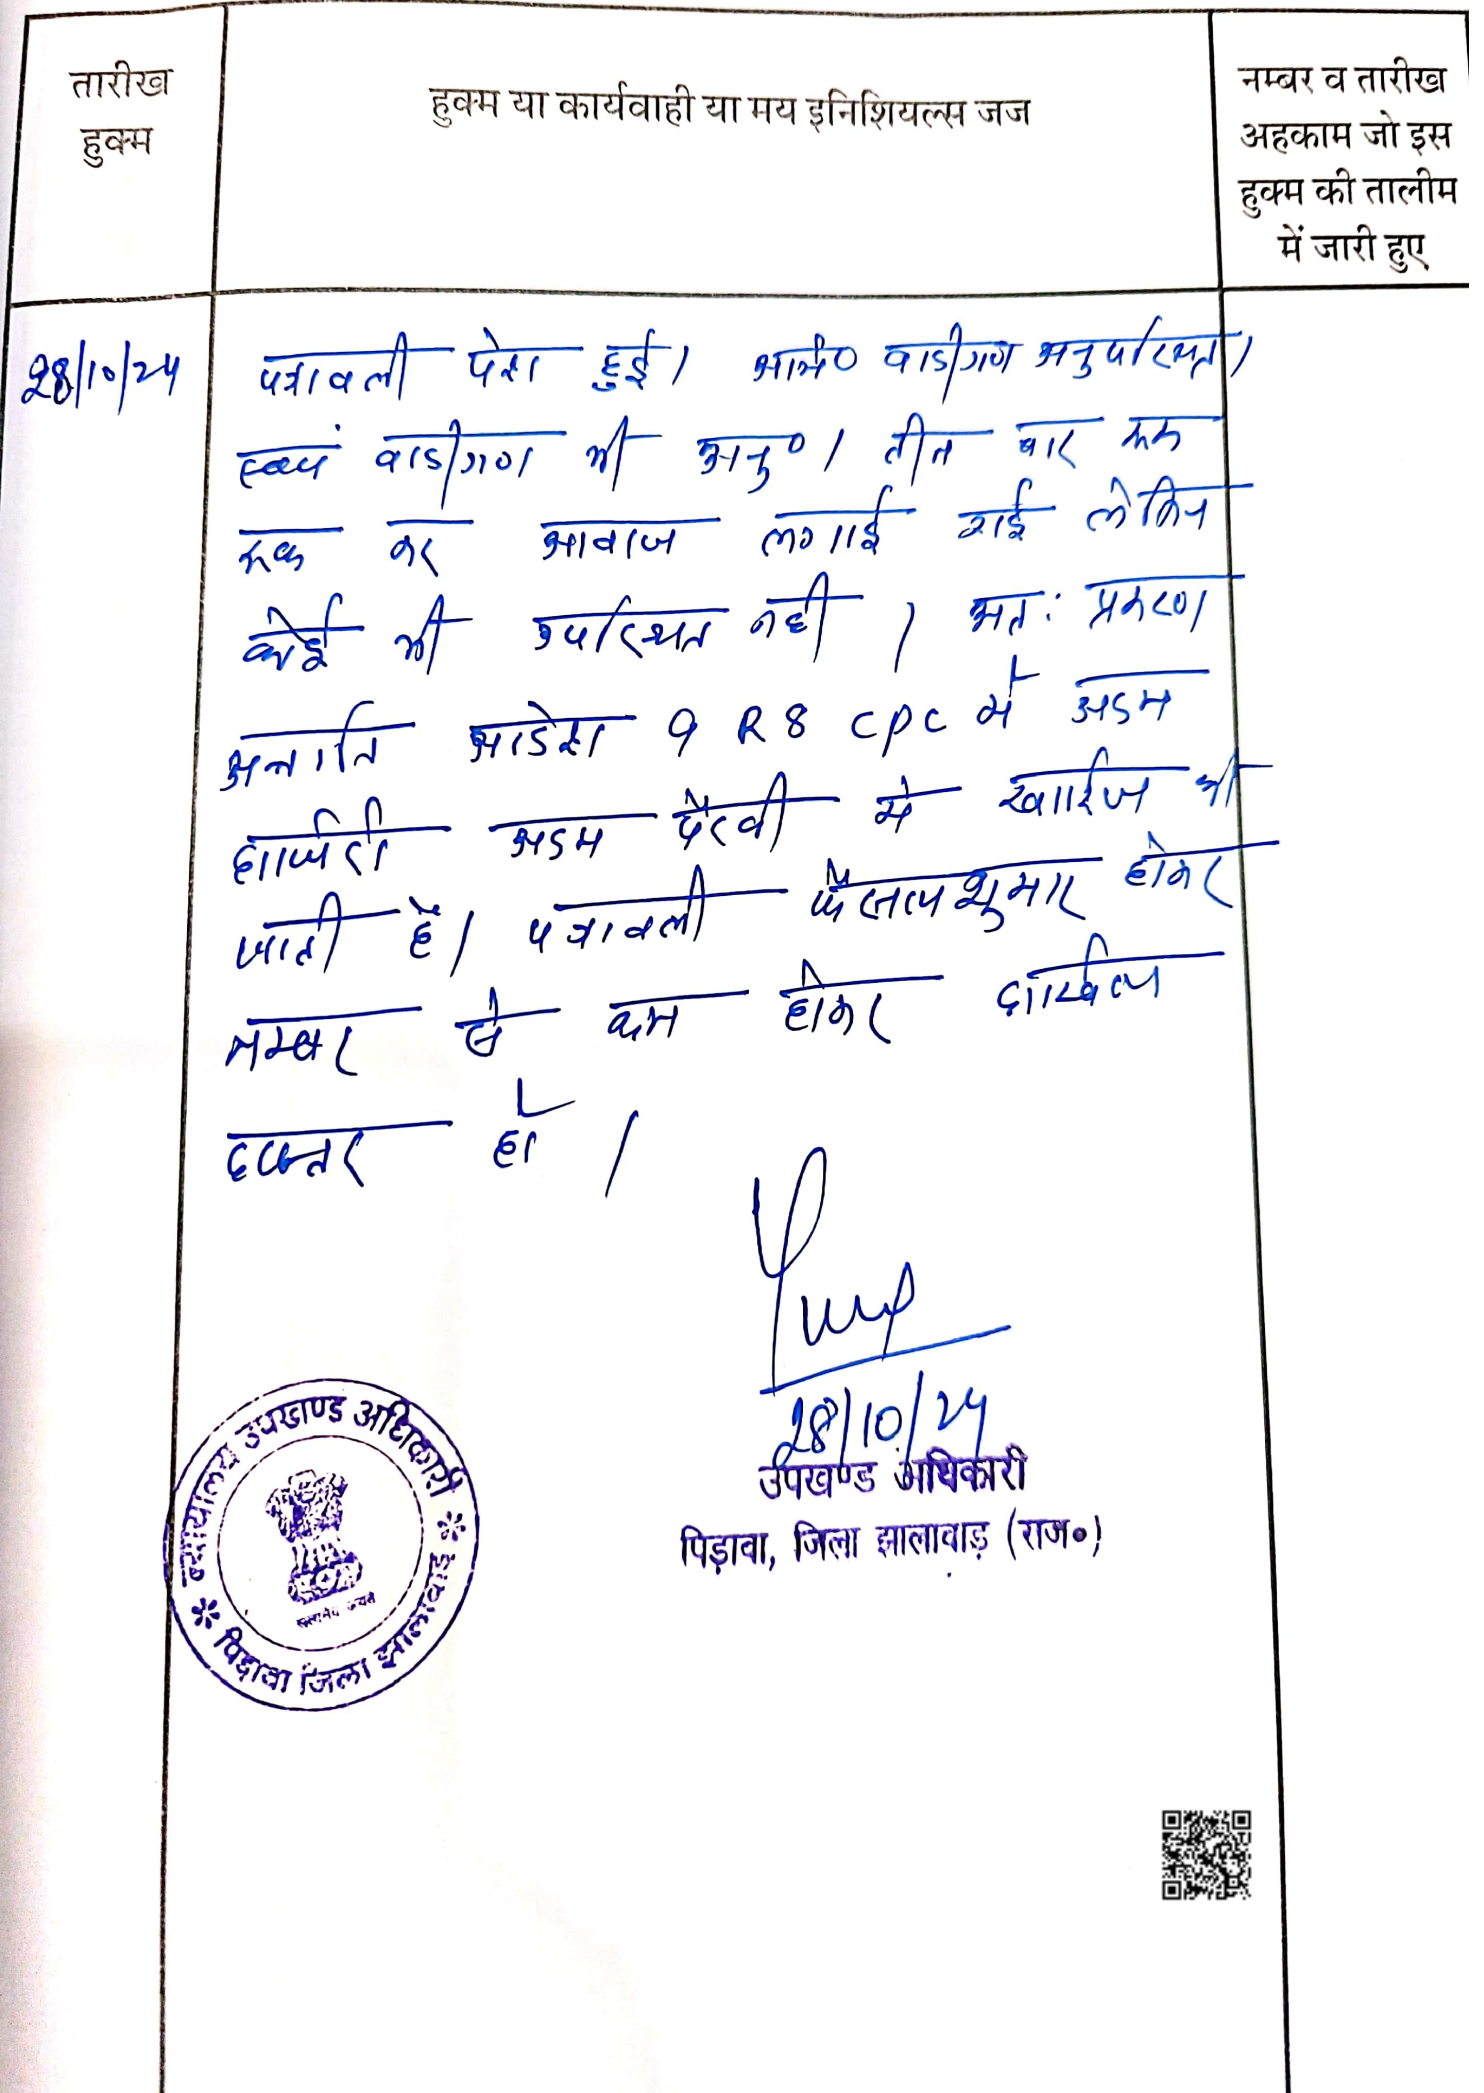 तारीख
हुक्म
हुक्म या कार्यवाही या मय इनिशियल्स जज
नम्बर व तारीख
अहकाम जो इस
हुक्म की तालीम
में जारी हुए
28/10/24
पत्रावली पेश हुई। अभि० वादीगण अनुपस्थित।
स्वयं वादीगण भी अनु०। तीन बार रूक
रूक कर आवाज लगाई गई लेकिन
कोई भी उपस्थित नही। अत: प्रकरण
अन्तर्गत आदेश 9 R 8 CPC में अदम
हाजिरी अदम पैरवी मे खारिज की
जाती है। पत्रावली फैसल शुमार होकर
नम्बर से कम होकर दाखिल
दफ्तर हों।
28/10/24
उपखण्ड अधिकारी
पिड़ावा, जिला झालावाड़ (राज०)
न्यायालय उपखण्ड अधिकारी
पिड़ावा जिला झालावाड़
सत्यमेव जयते